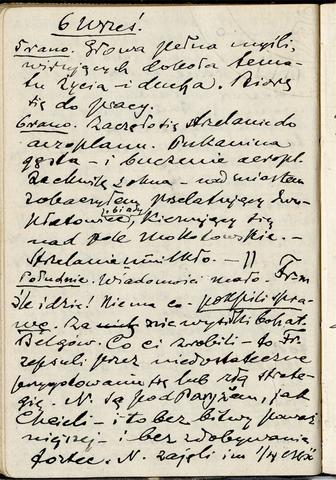 6 Wrześ.
7 rano. Głowa pełna myśli,
wirujących dokoła tema-
tu życia – i ducha. Biorę
się do pracy.
6 rano. Zaczęło się strzelanie do
aeroplanu. Pukanina
gęsta – i buczenie aeropl.
Za chwilę z okna – nad miastem
zobaczyłem przelatujący
płatowiec, kierujący się
nad pole Mokotowskie. –
Strzelanie umilkło. – ||
Południe. Wiadomości mało.
źle idzie! Niema co – spra-
wę. Za nic wysiłki bohat.
Belgów. Co ci zrobili – to Fr.
zepsuli przez niedostateczne
przygotowanie się lub złą strate-
gię. N. są pod Paryżem, jak
chcieli – i to bez bitwy poważ
niejszej – i bez zdobywania
fortec. N. zajęli im 1/4